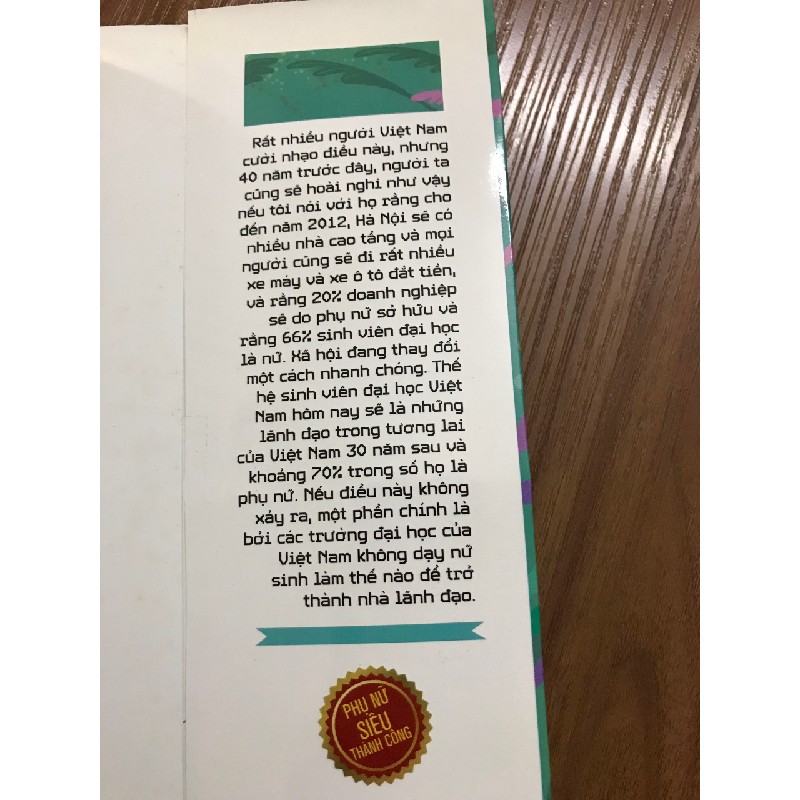 Rất nhiều người Việt Nam
cười nhạo điều này, nhưng
40 năm trước đây, người ta
cũng sẽ hoài nghi như vậy
nếu tôi nói với họ rằng cho
đến năm 2012, Hà Nội sẽ có
nhiều nhà cao tầng và mọi
người cũng sẽ đi rất nhiều
xe máy và xe ô tô đắt tiền,
và rằng 20% doanh nghiệp
sẽ do phụ nữ sở hữu và
rằng 66% sinh viên đại học
là nữ. Xã hội đang thay đổi
một cách nhanh chóng. Thế
hệ sinh viên đại học Việt
Nam hôm nay sẽ là những
lãnh đạo trong tương lai
của Việt Nam 30 năm sau và
khoảng 70% trong số họ là
phụ nữ. Nếu điều này không
xảy ra, một phần chính là
bởi các trường đại học của
Việt Nam không dạy nữ
sinh làm thế nào để trở
thành nhà lãnh đạo.
PHỤ NỮ
SIÊU
THÀNH CÔNG